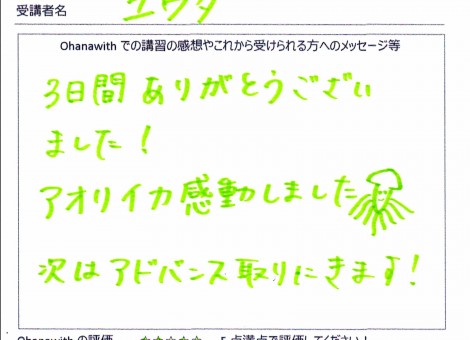 受講者名 ユウタ
Ohanawith での講習の感想やこれから受けられる方へのメッセージ等
3日間ありがとうござい
ました!
アオリイカ感動しました
次はアドバンス取りにきます!
Ohanawith の評価 ☆☆☆☆☆ 5 点満点で評価してください!